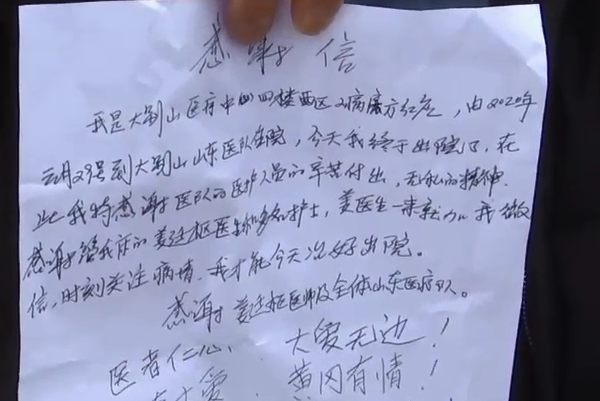 感谢信
我是大别山医疗中心四楼西区病房方红霞，由2020年
月2号到大别山山东医队住院，今天我终于出院了，在
此我特感谢医队的医护人员的辛苦付出，无私的精神。
感谢管我床的姜廷枢医生和多名护士，姜医生一来就加我微
信，时刻关注病情，我才能今天治好出院。
感谢姜廷枢医师及全体山东医疗队。
医者仁心、大爱无边！
大爱，黄冈有情！